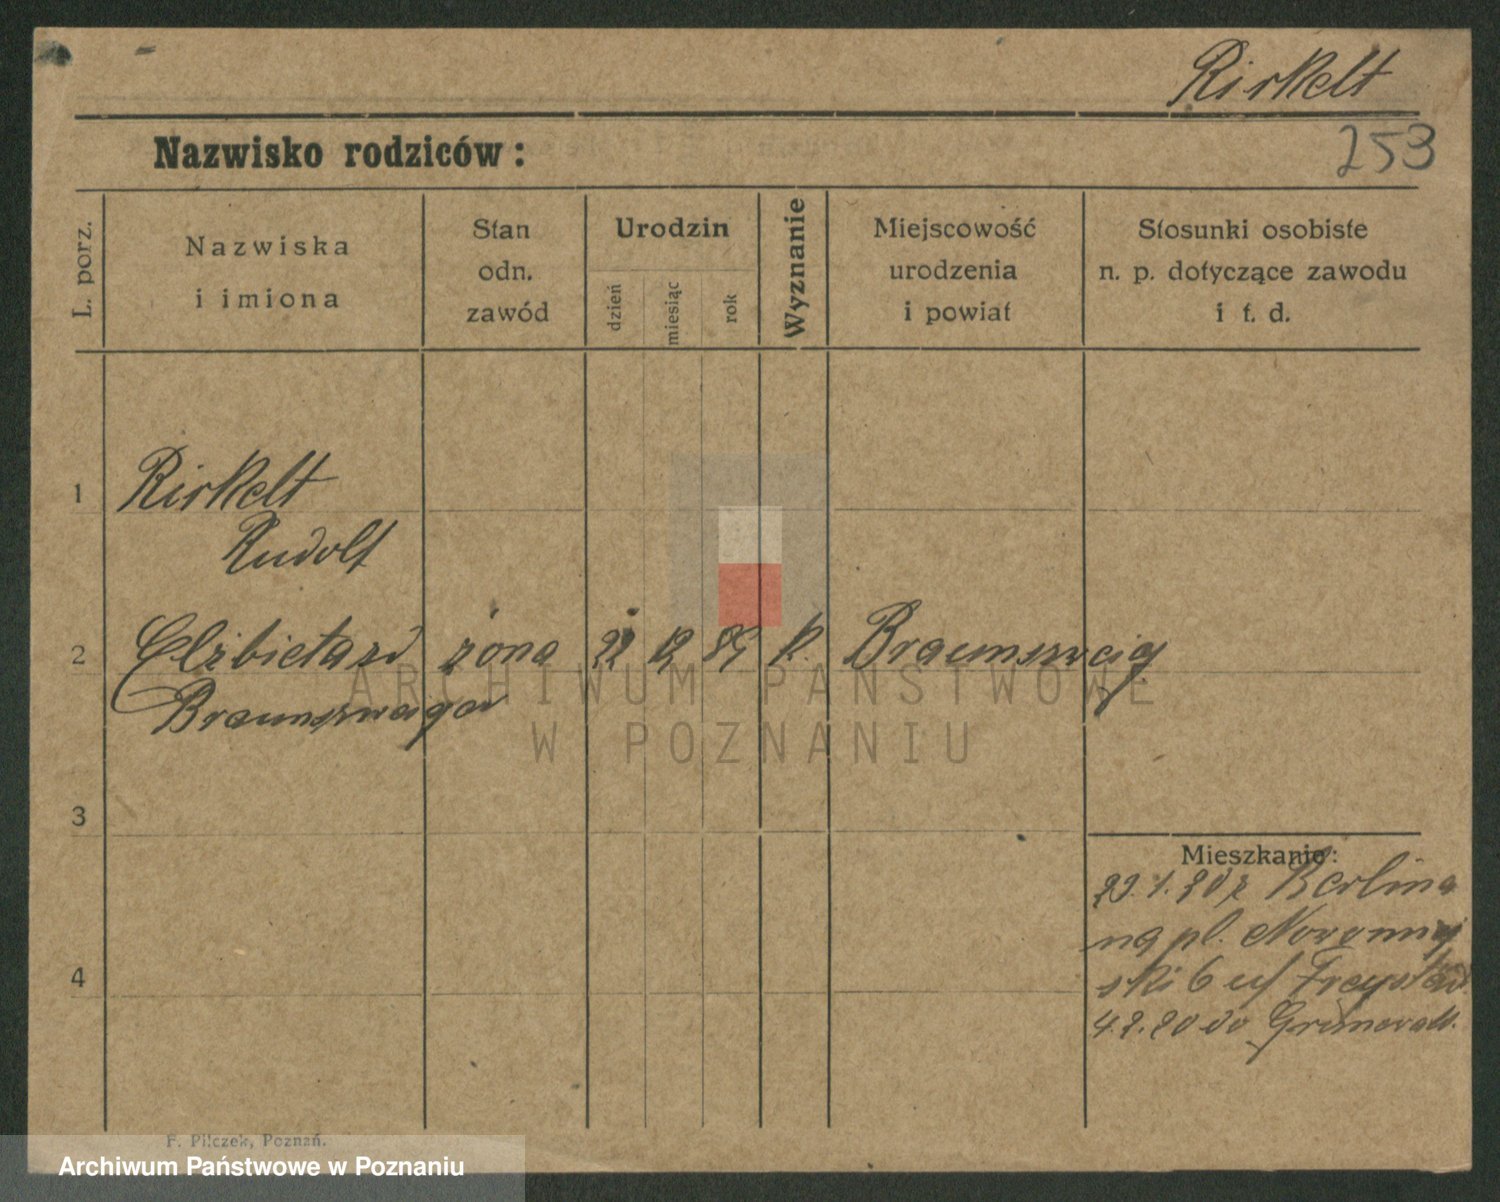 Rirkelt
253
Nazwisko rodziców:
L. porz.
Nazwiska
i imiona
Stan
odn.
zawód
Urodzin
dzień
miesiąc
rok
Wyznanie
Miejscowość
urodzenia
i powiat
Stosunki osobiste
n. p. dotyczące zawodu
i t. d.
1
Rirkelt
Rudolf
2
Elżbieta żona 22 12 89 k. Braunszweig
3
Mieszkanie:
z Berlina
na pl.
ski 6
4
4.2.20 do
F. Pilczek, Poznań.
ARCHIWUM PAŃSTWOWE
W POZNANIU
Archiwum Państwowe w Poznaniu